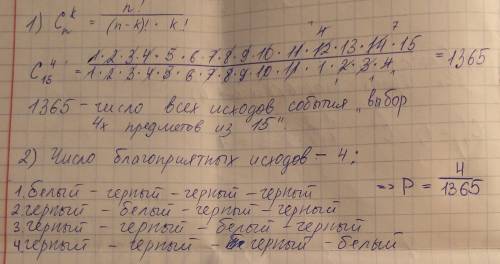 1) Cₙᵏ = n! / (n-k)! · k!
4 7
C₁₅⁴ = 1·2·3·4·5·6·7·8·9·10·11·12·13·14·15 / 1·2·3·4·5·6·7·8·9·10·11·1·2·3·4 = 1365
1365 - число всех исходов события „выбор
4х предметов из 15".
2) Число благоприятных исходов - 4:
1. белый - черный - черный - черный
2. черный - белый - черный - черный
3. черный - черный - белый - черный
4. черный - черный - черный - белый
=> P = 4/1365